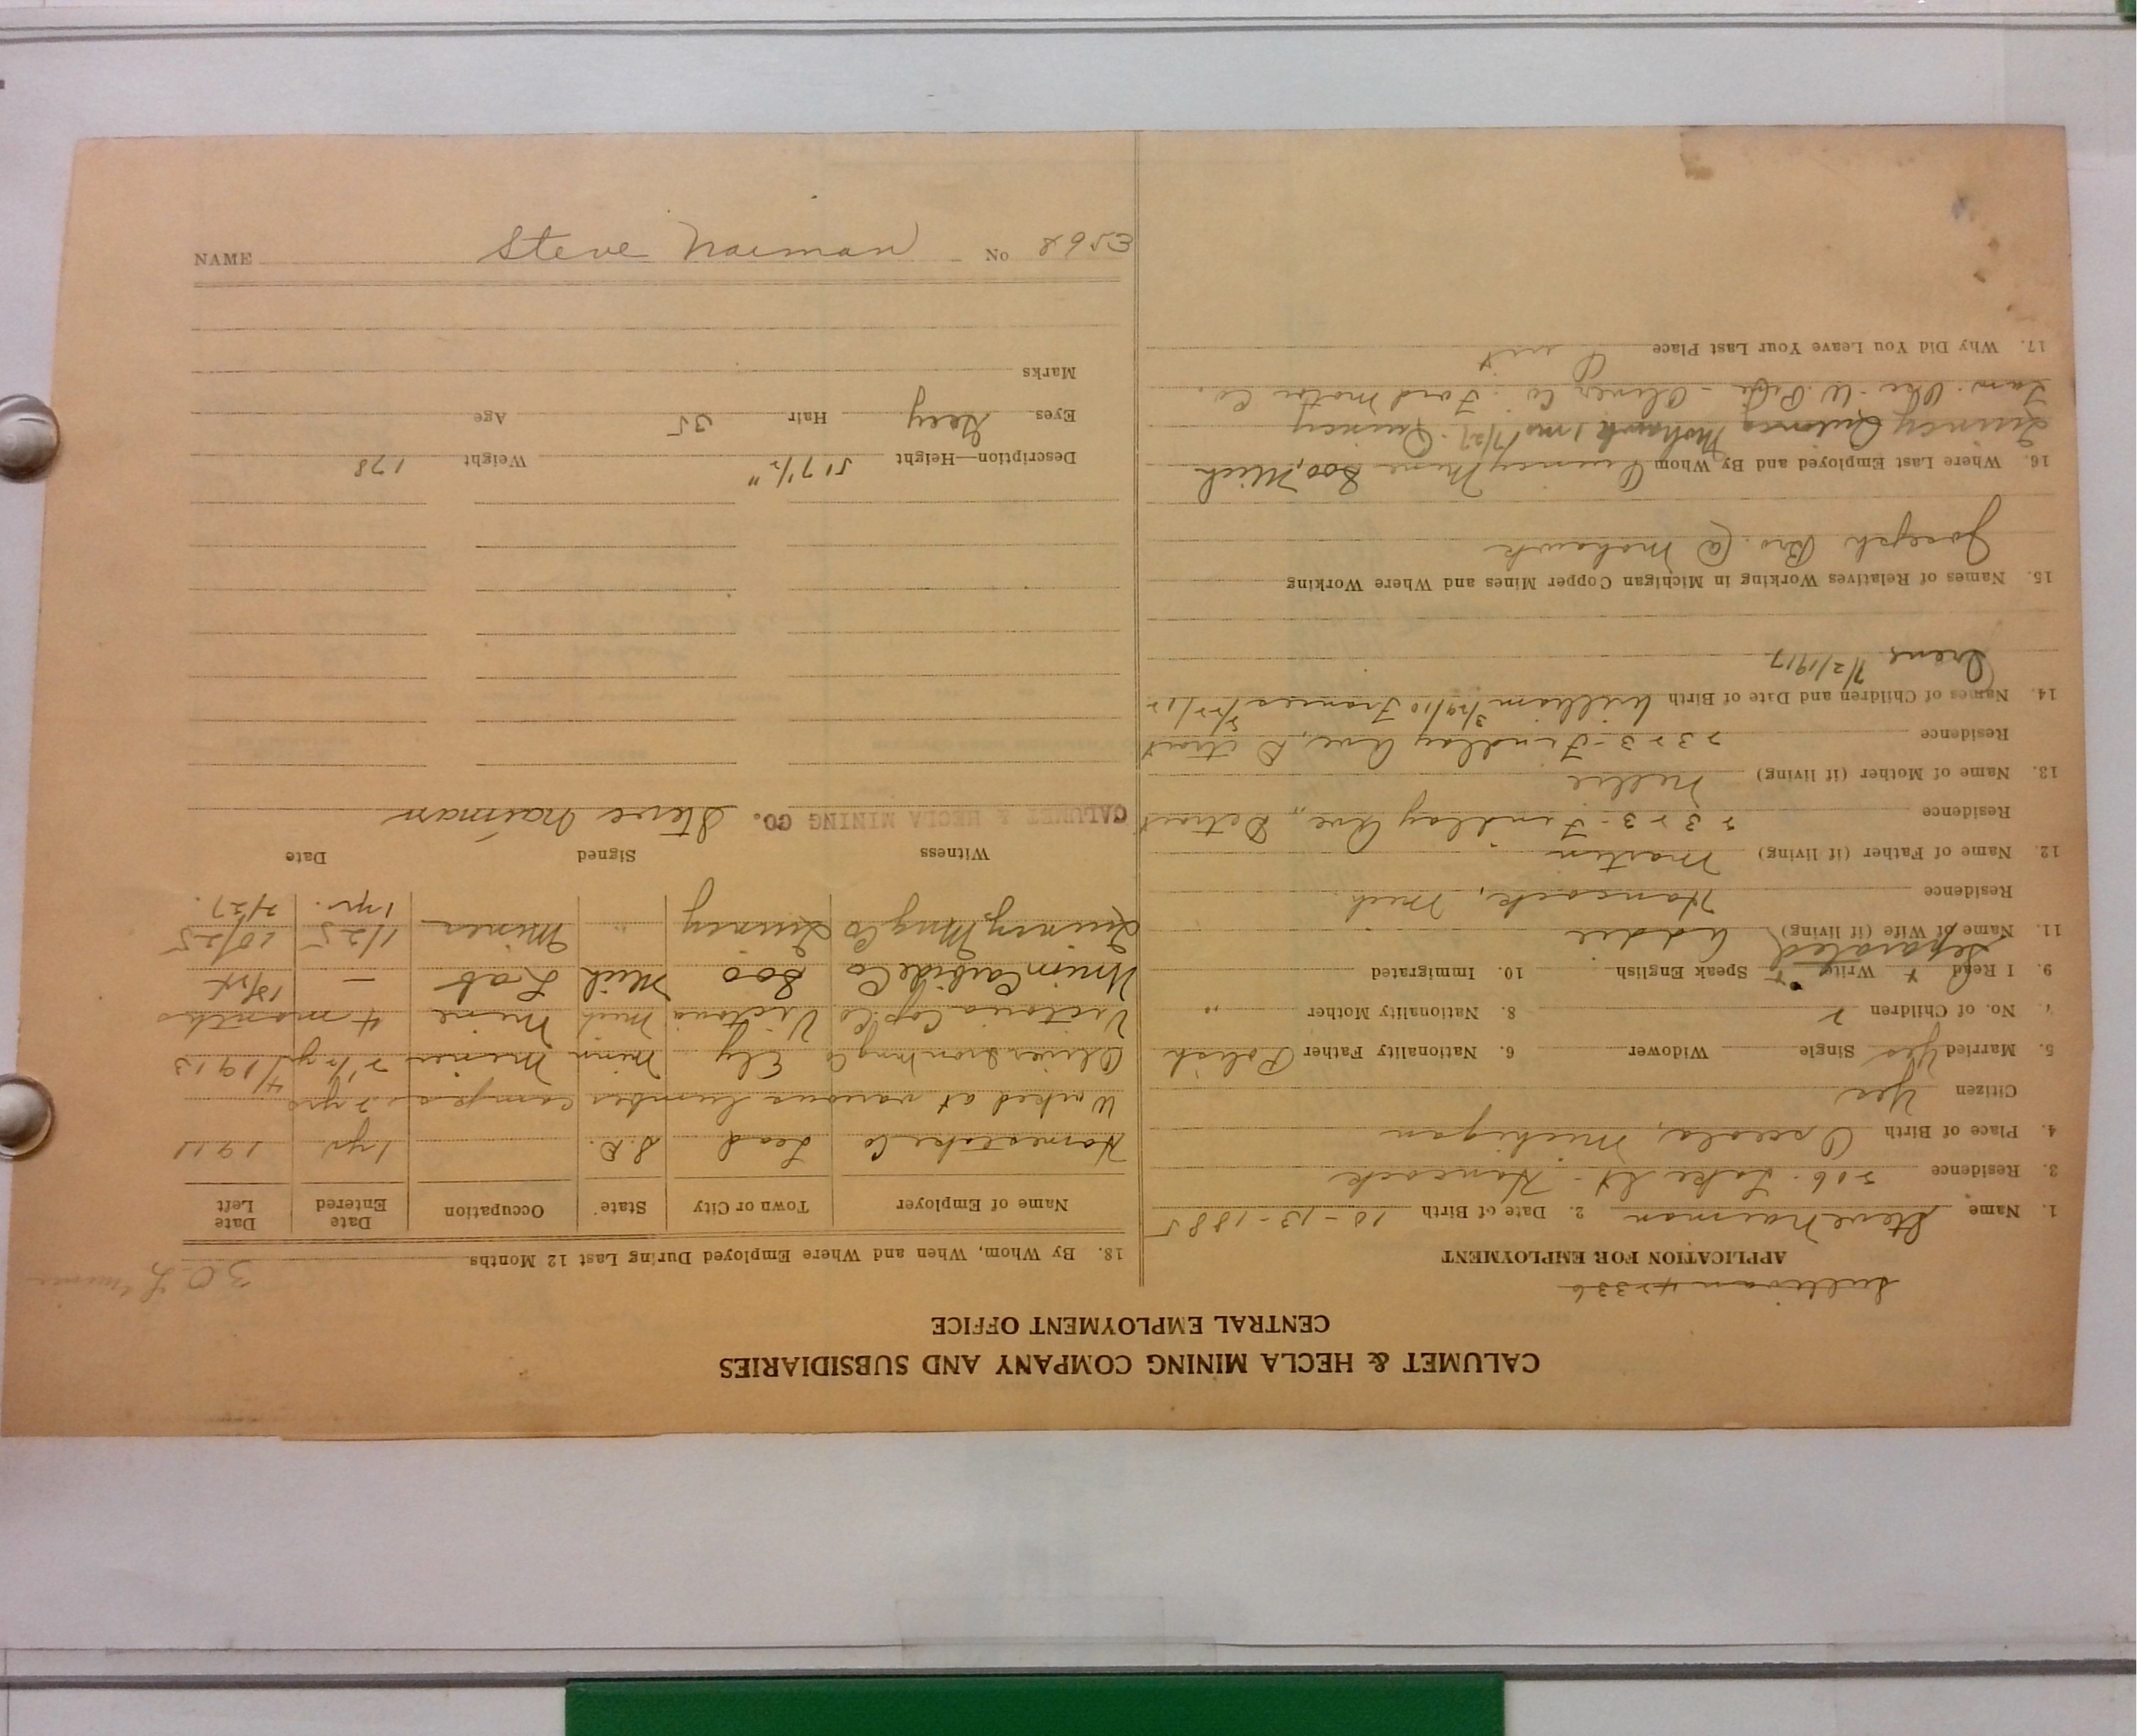 CALUMET & HECLA MINING COMPANY AND SUBSIDIARIES
CENTRAL EMPLOYMENT OFFICE
Sullivan 42336
APPLICATION FOR EMPLOYMENT
1. Name Steve Naiman 2. Date of Birth 10-13-1885
3. Residence 506. Lake St - Hancock
4. Place of Birth Osceola, Michigan
Citizen Yes
5. Married Yes Single Widower 6. Nationality Father Polish
7. No. of Children 2 8. Nationality Mother "
9. I Read x Write x Speak English 10. Immigrated
Separated
11. Name of Wife (if living) Addie
Residence Hancock, Mich.
12. Name of Father (if living) Martin
Residence 2323-Findlay Ave., Detroit
13. Name of Mother (if living) Nellie
Residence 2323-Findlay Ave, Detroit
14. Names of Children and Date of Birth William 3/29/10 Frances
Irene 7/2/1917
15. Names of Relatives Working in Michigan Copper Mines and Where Working
Joseph Bro. @ Mohawk
16. Where Last Employed and By Whom Quincy Mine Soo, Mich
Quincy Mohawk 1 mo 7/27. Quincy
Oliver Co. Ford Motor Co.
17. Why Did You Leave Your Last Place Quit
18. By Whom, When and Where Employed During Last 12 Months
Name of Employer Town or City State Occupation Date Entered Date Left
Homestake Co Lead S.D. 1 yr. 1911
Worked at various lumber camps 2 yrs
Oliver Iron Mng Co Ely Minn Miner 2 1/2 yrs 4/1913
Victoria Cop Co Victoria Mich Mine 4 months
Union Carbide Co Soo Mich Lab —
Quincy Mng Co Quincy " Miner 1/25 10/25
1 yr. 2/27.
Witness Signed Date
CALUMET & HECLA MINING CO. Steve Naiman
Description—Height 5' 7 1/2" Weight 178
Eyes Grey Hair 35 Age
Marks
NAME Steve Naiman No 8953